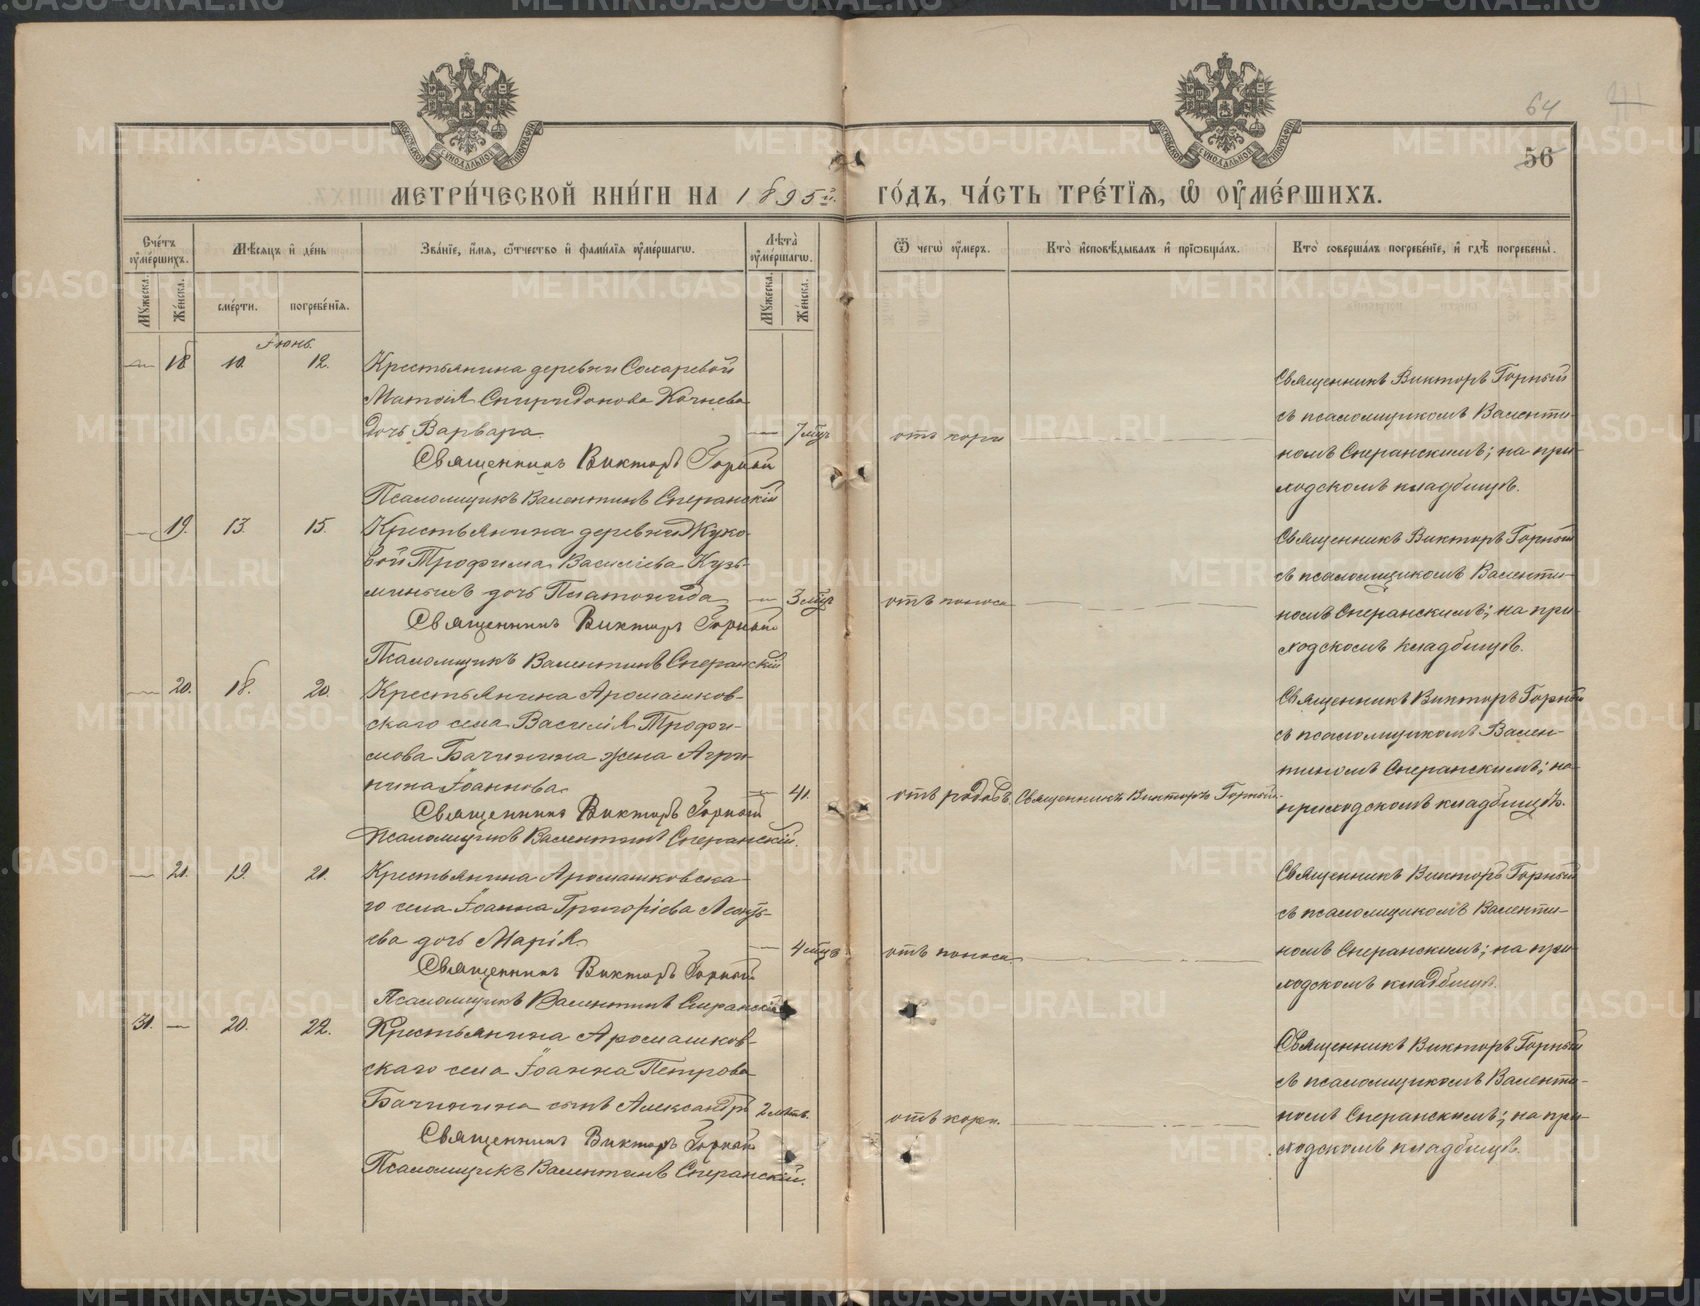 64
56
МЕТРИ́ЧЕСКОЙ КНИ́ГИ НА 1895й.
ГО́ДЪ, ЧА́СТЬ ТРЕ́ТЇЯ, Ѡ҆ ОУ҆МЕ́РШИХЪ.
Сче́тъ оу҆ме́ршихъ.
Мѣ́сяцъ и҆ де́нь
Зва́нїе, и҆́мя, ѻ҆́тчество и҆ фамі́лїя оу҆ме́ршагѡ.
Лѣ́та оу҆ме́ршагѡ.
Ѿ чегѡ̀ оу҆́меръ.
Кто̀ и҆сповѣ́дывалъ и҆ прїѡбща́лъ.
Кто̀ соверша́лъ погребе́нїе, и҆ гдѣ̀ погребены̀.
Мꙋ́жеска.
Же́нска.
сме́рти.
погребе́нїя.
Мꙋ́жеска.
Же́нска.
Іюнь.
— 18 10. 12.
Крестьянина деревни Сохаревой
Спиридонова Качнева
дочь Варвара — 7 мцъ
Священникъ Викторъ Горный
Псаломщикъ Валентинъ Сперанскій
отъ кори
Священникъ Викторъ Горный
съ псаломщикомъ Валенти-
номъ Сперанскимъ; на при-
ходскомъ кладбищѣ.
— 19. 13. 15.
Крестьянина деревни Жуко-
вой Трофима Василіева Кузь-
миныхъ дочь Платонида — 3 мцъ
Священникъ Викторъ Горный
Псаломщикъ Валентинъ Сперанскій
отъ поноса
Священникъ Викторъ Горный
съ псаломщикомъ Валенти-
номъ Сперанскимъ; на при-
ходскомъ кладбищѣ.
— 20. 18. 20.
Крестьянина Аромашков-
скаго села Василія Трофи-
мова Бачинина жена Агри-
пина Іоаннова — 41.
Священникъ Викторъ Горный
Псаломщикъ Валентинъ Сперанскій.
отъ родовъ. Священникъ Викторъ Горный.
Священникъ Викторъ Горный
съ псаломщикомъ Вален-
тиномъ Сперанскимъ; на
приходскомъ кладбищѣ.
— 21. 19. 21.
Крестьянина Аромашковска-
го села Іоанна Григорієва Леонть-
ева дочь Марія — 4 мцъ
Священникъ Викторъ Горный
Псаломщикъ Валентинъ Сперанскій
отъ поноса
Священникъ Викторъ Горный
съ псаломщикомъ Валенти-
номъ Сперанскимъ; на при-
ходскомъ кладбищѣ.
31. — 20. 22.
Крестьянина Аромашков-
скаго села Іоанна Петрова
Бачинина сынъ Александръ 2 лѣтъ.
Священникъ Викторъ Горный
Псаломщикъ Валентинъ Сперанскій.
отъ кори.
Священникъ Викторъ Горный
съ псаломщикомъ Валенти-
номъ Сперанскимъ; на при-
ходскомъ кладбищѣ.
METRIKI.GASO-URAL.RU